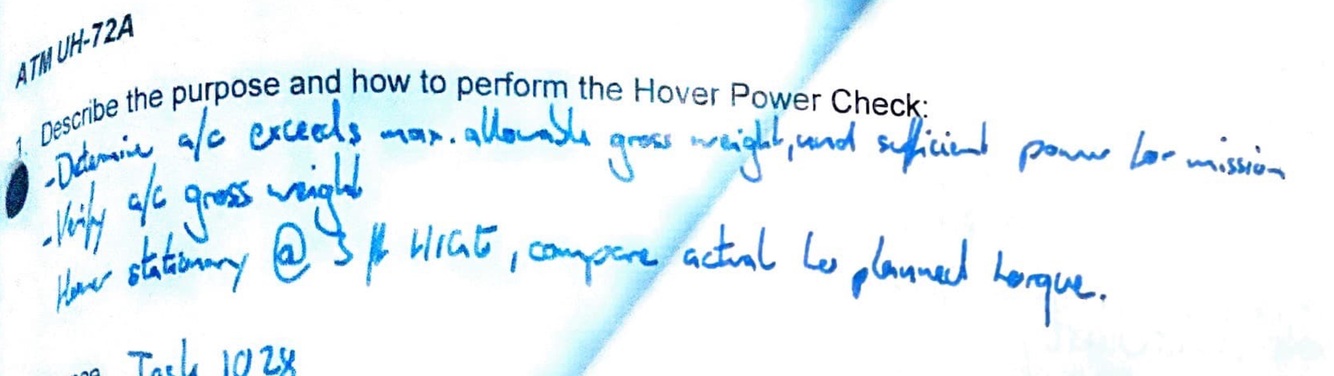 ATM UH-72A
1. Describe the purpose and how to perform the Hover Power Check:
-Determine a/c exceeds max. allowable gross weight, and sufficient power for mission
-Verify a/c gross weight
Hover stationary @ 3 ft HIGE, compare actual to planned torque.
Task 1028